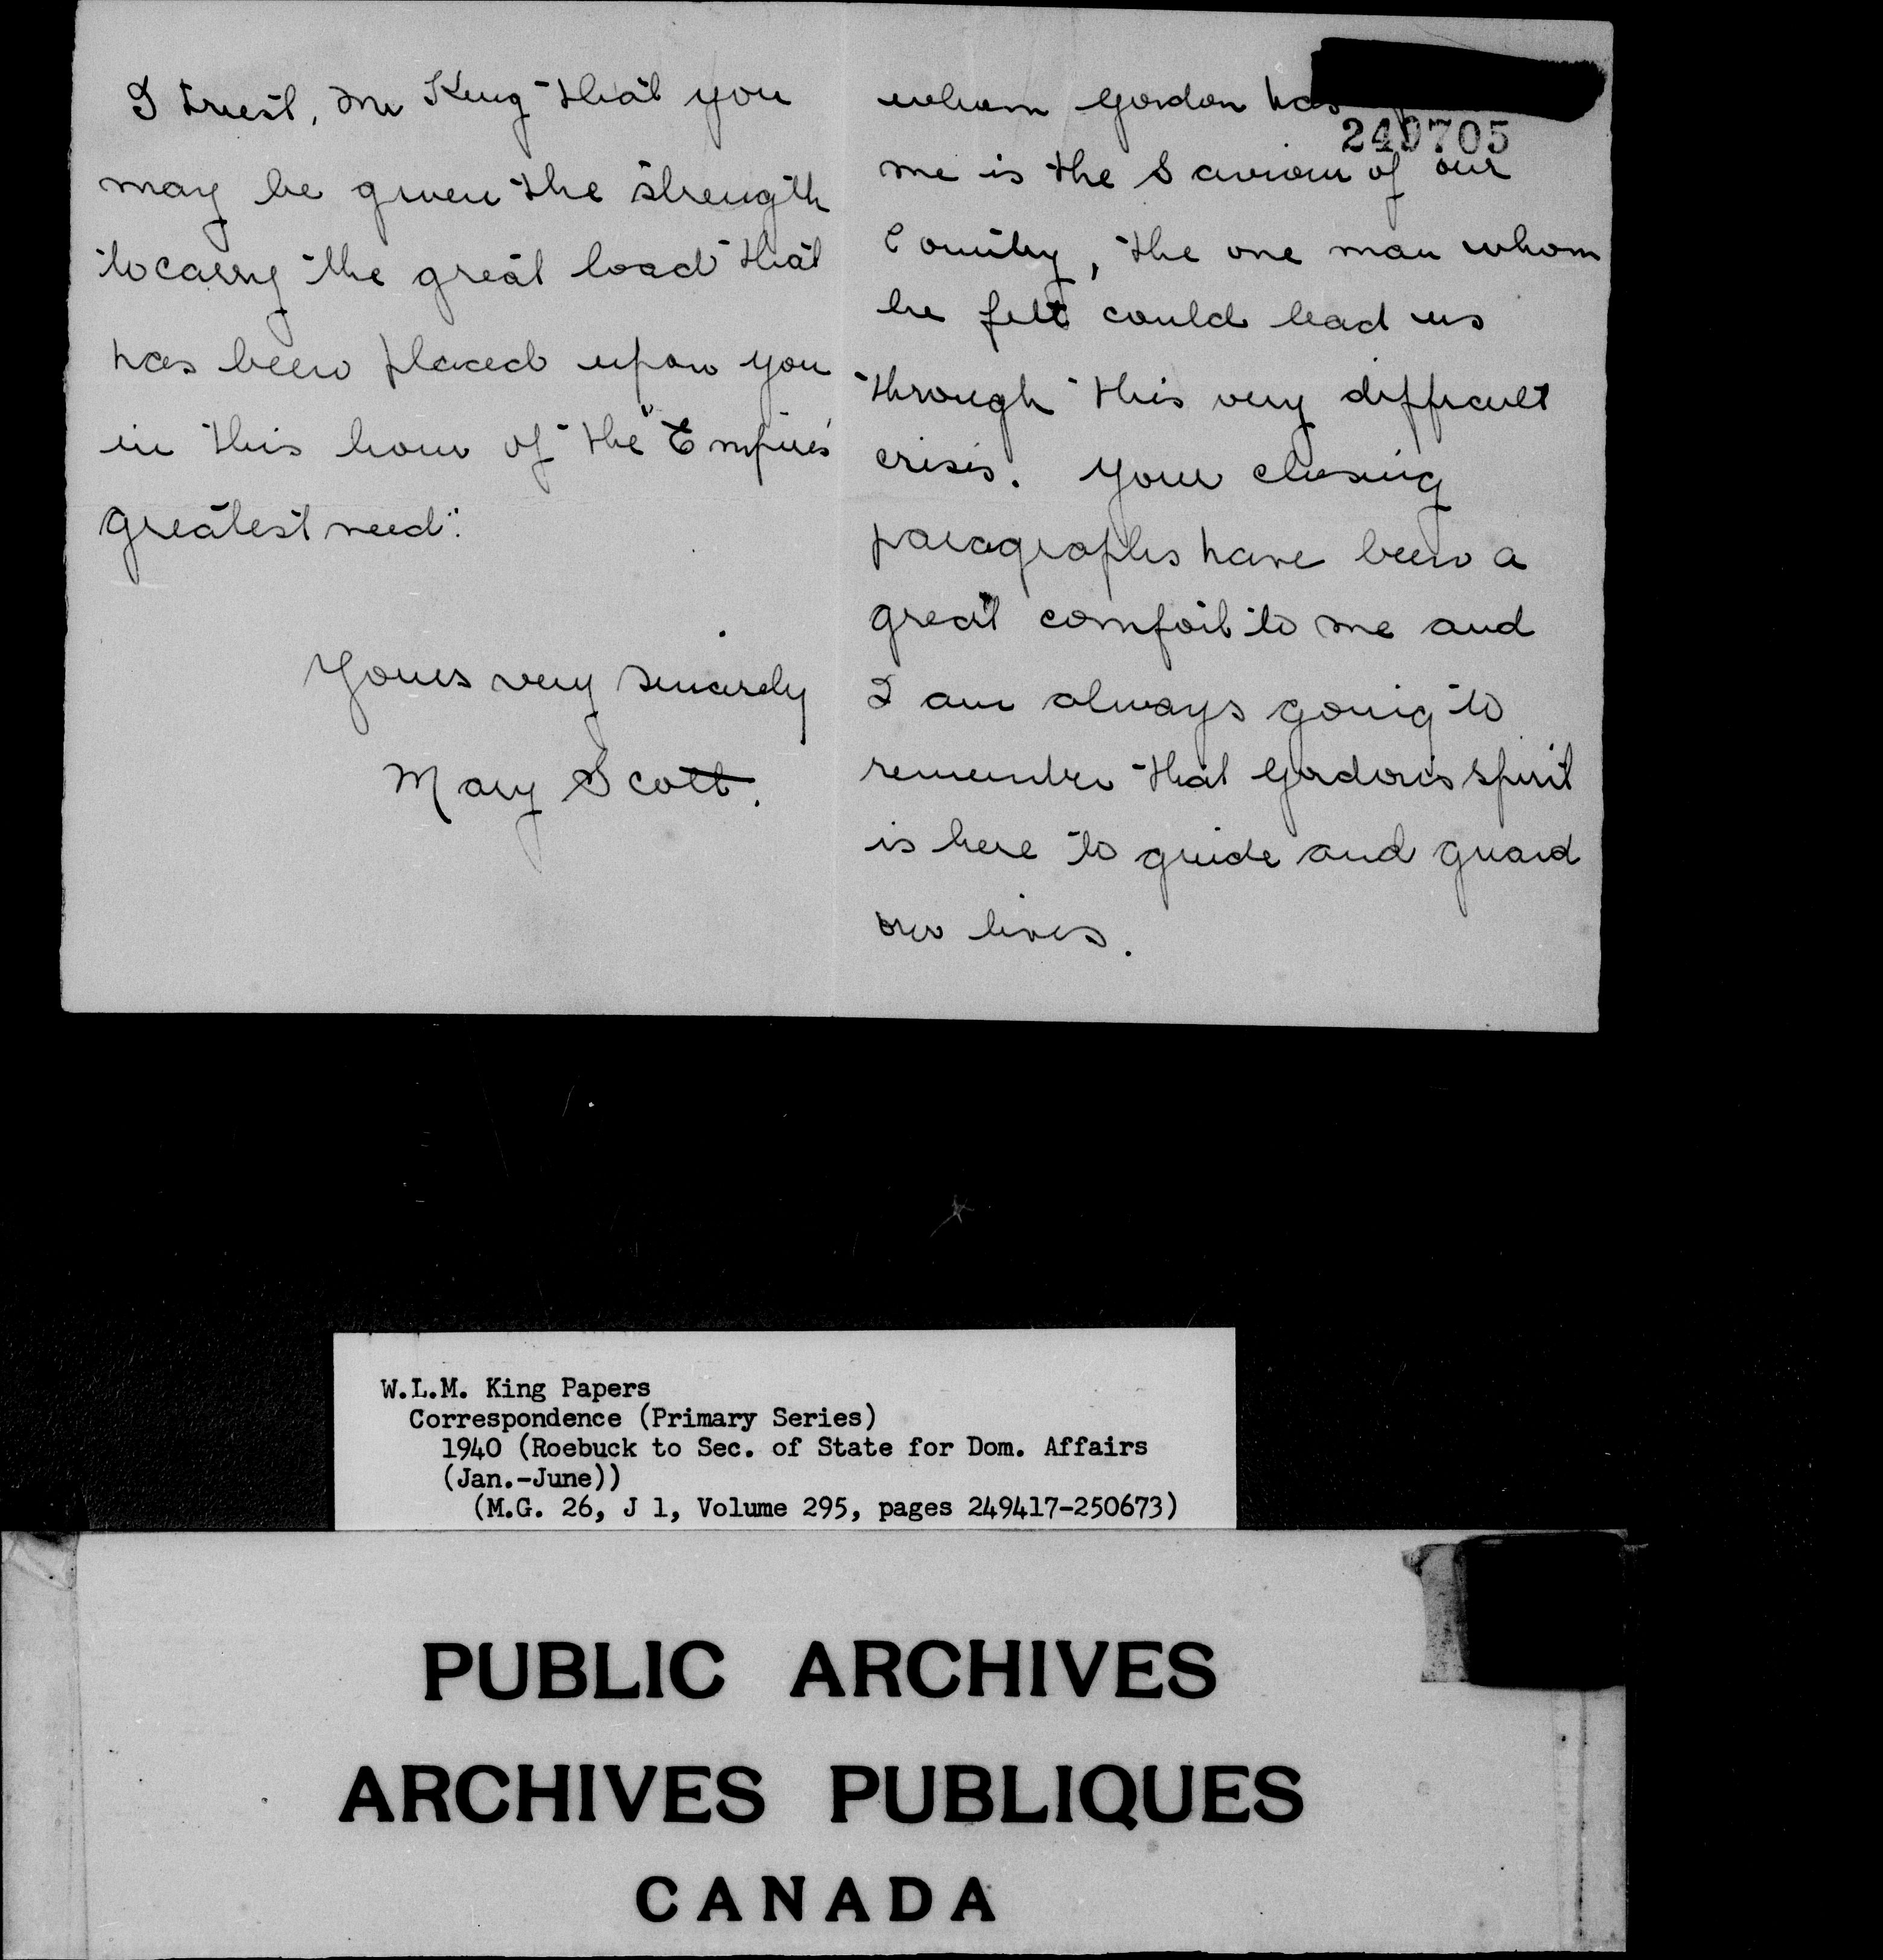 I trust, Mr King that you
may be given the strength
to carry the great load that
has been placed upon you
in this hour of the "Empire's
greatest need".
Yours very sincerely
Mary Scott.
whom Gordon has
249705
me is the Saviour of our
Country, the one man whom
he felt could lead us
through this very difficult
crisis. Your closing
paragraphs have been a
great comfort to me and
I am always going to
remember that Gordon's spirit
is here to guide and guard
our lives.
W.L.M. King Papers
Correspondence (Primary Series)
1940 (Roebuck to Sec. of State for Dom. Affairs
(Jan.-June))
(M.G. 26, J 1, Volume 295, pages 249417-250673)
PUBLIC ARCHIVES
ARCHIVES PUBLIQUES
CANADA